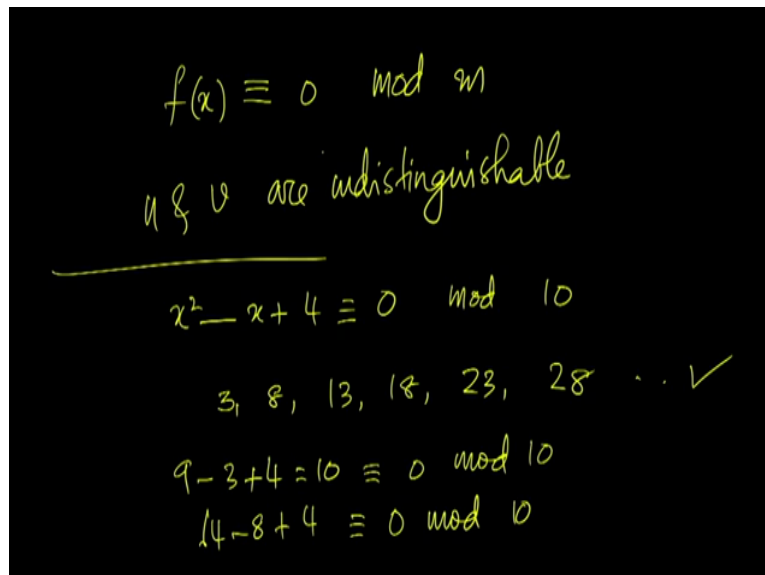 f(x) ≡ 0 mod m
u & v are indistinguishable
x² - x + 4 ≡ 0 mod 10
3, 8, 13, 18, 23, 28 .. ✓
9 - 3 + 4 = 10 ≡ 0 mod 10
64 - 8 + 4 ≡ 0 mod 10